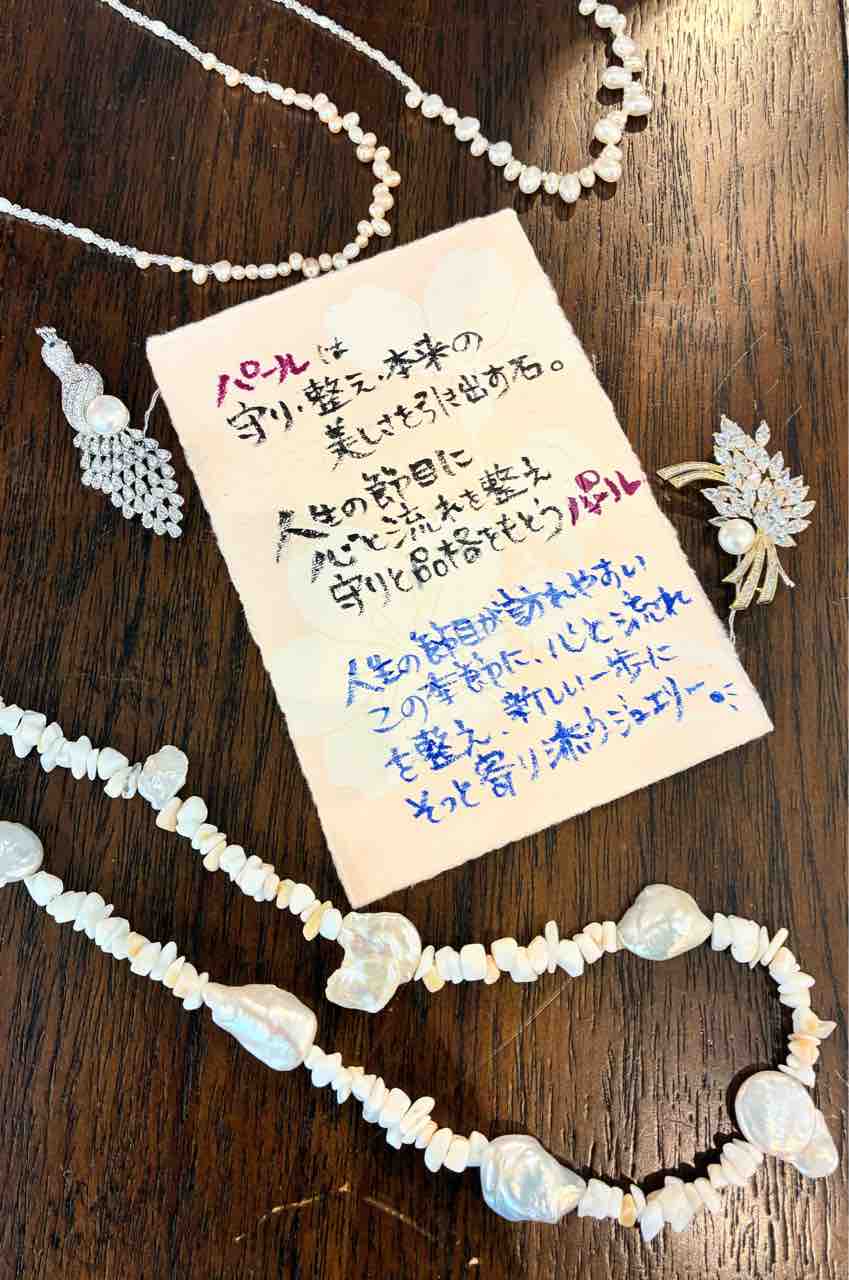 パールは
守り・整え・本来の
美しさを引き出す石。
人生の節目に
心と流れを整え
守りと品格をもとうパール
人生の節目が訪れやすい
この季節に、心と流れ
を整え、新しい一歩に
そっと寄り添うジュエリー。